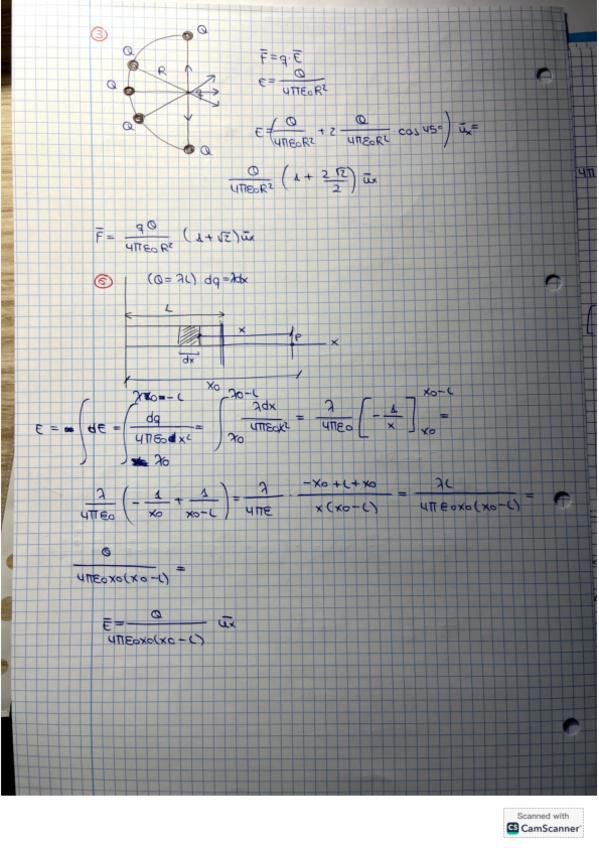 ③ Q
Q
Q R F̄ = q·Ē
Q E = Q/4πε0R²
Q
E = (Q/4πε0R² + 2 Q/4πε0R² · cos 45°) ūx =
Q/4πε0R² (1 + 2√2/2) ūx
F̄ = qQ/4πε0R² (1+√2) ūx
⑤ (Q = λL) dq = λdx
L
x P x
dx
x0
E = ∫ dE = ∫ dq/4πε0x² = ∫ λdx/4πε0x² = λ/4πε0 [-1/x] x0-L x0 =
λ/4πε0 (-1/x0 + 1/x0-L) = λ/4πε · -x0+L+x0/x(x0-L) = λL/4πε0x0(x0-L) =
Q/4πε0x0(x0-L) =
Ē = Q/4πε0x0(x0-L) ūx
Scanned with
CS CamScanner